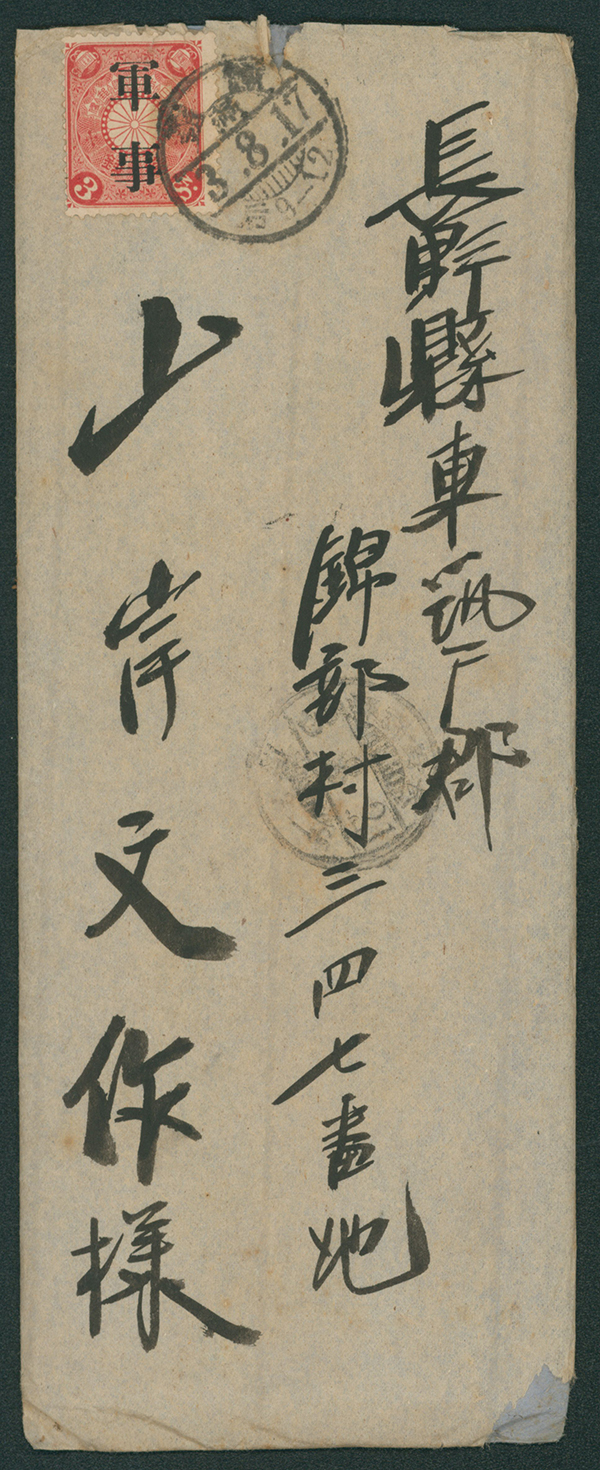 軍事
3 3
3.8.17
9-12
長野縣東筑广郡
錦部村三四七番地
山岸文作様